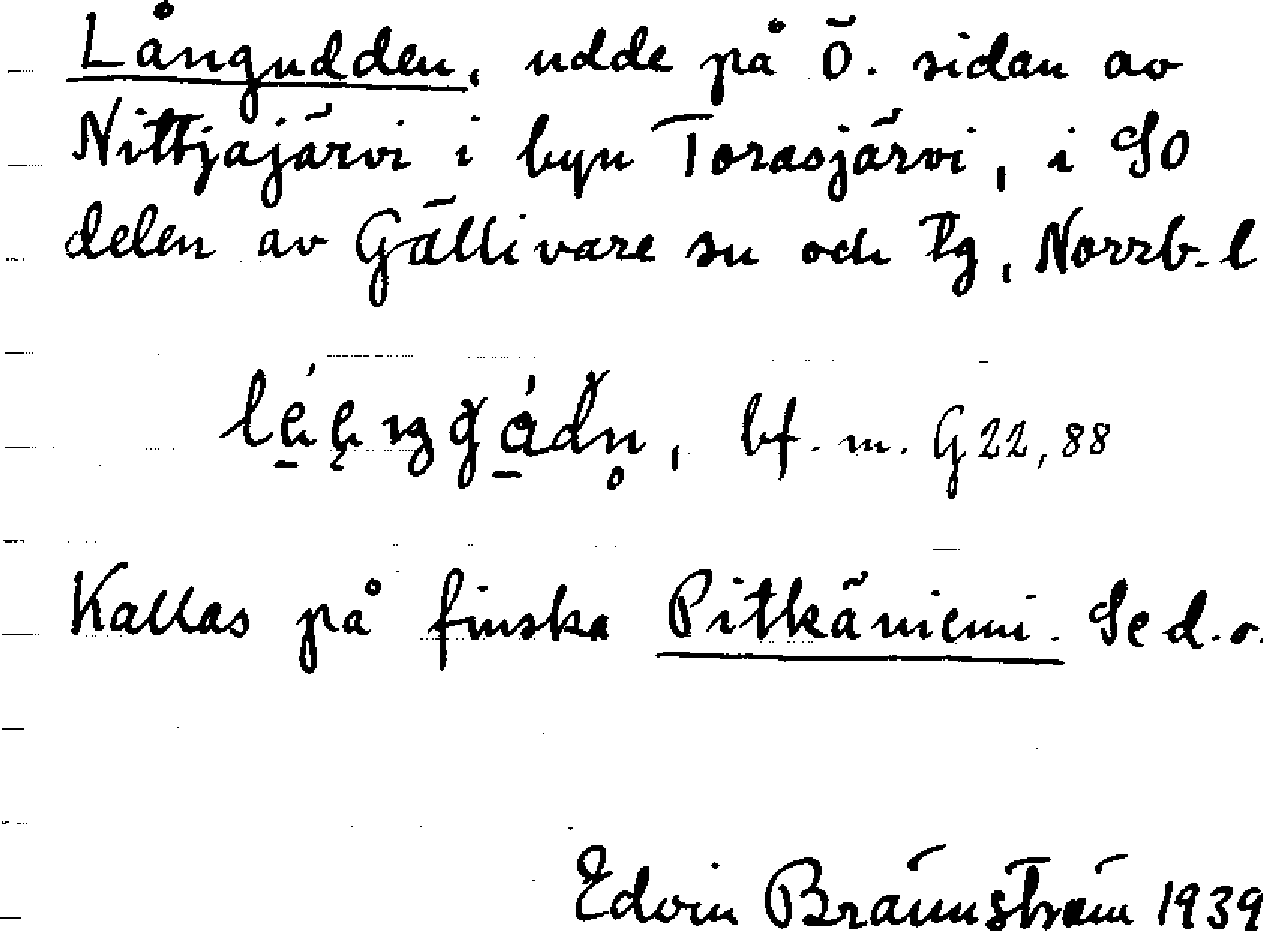 Långudden, udde på Ö. sidan av
Nittjajärvi i byn Torasjärvi, i SO
delen av Gällivare sn och tg, Norrb. l
bf. m. G 22, 88
Kallas på finska Pitkäniemi. Se d. o.
Edvin Brännström 1939